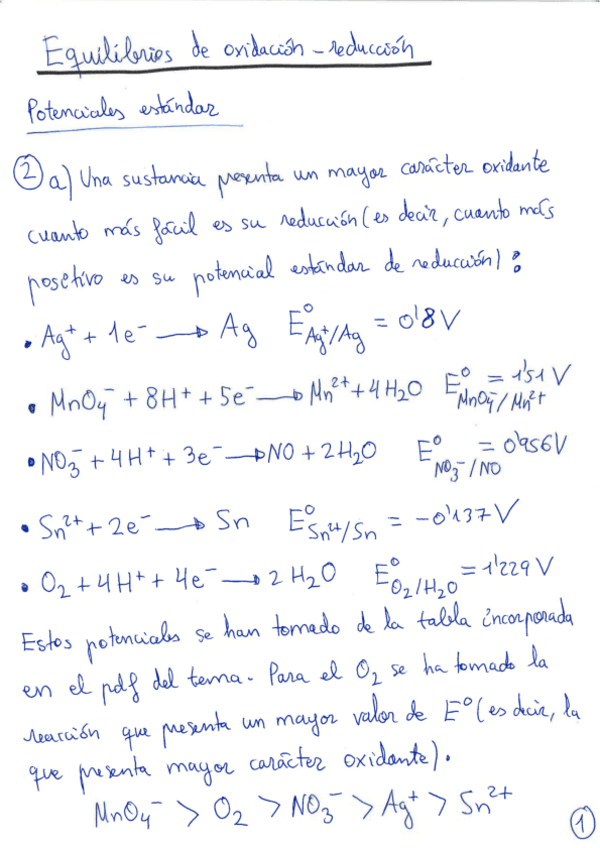 Equilibrios de oxidación-reducción
Potenciales estándar
② a) Una sustancia presenta un mayor carácter oxidante
cuanto más fácil es su reducción (es decir, cuanto más
posetivo es su potencial estándar de reducción):
• Ag⁺ + 1e⁻ → Ag E⁰ Ag⁺/Ag = 0'8V
• MnO₄⁻ + 8H⁺ + 5e⁻ → Mn²⁺ + 4H₂O E⁰ MnO₄⁻/Mn²⁺ = 1'51 V
• NO₃⁻ + 4H⁺ + 3e⁻ → NO + 2H₂O E⁰ NO₃⁻/NO = 0'956V
• Sn²⁺ + 2e⁻ → Sn E⁰ Sn²⁺/Sn = -0'137 V
• O₂ + 4H⁺ + 4e⁻ → 2 H₂O E⁰ O₂/H₂O = 1'229 V
Estos potenciales se han tomado de la tabla incorporada
en el pdf del tema. Para el O₂ se ha tomado la
reacción que presenta un mayor valor de E⁰ (es decir, la
que presenta mayor carácter oxidante).
MnO₄⁻ > O₂ > NO₃⁻ > Ag⁺ > Sn²⁺
①